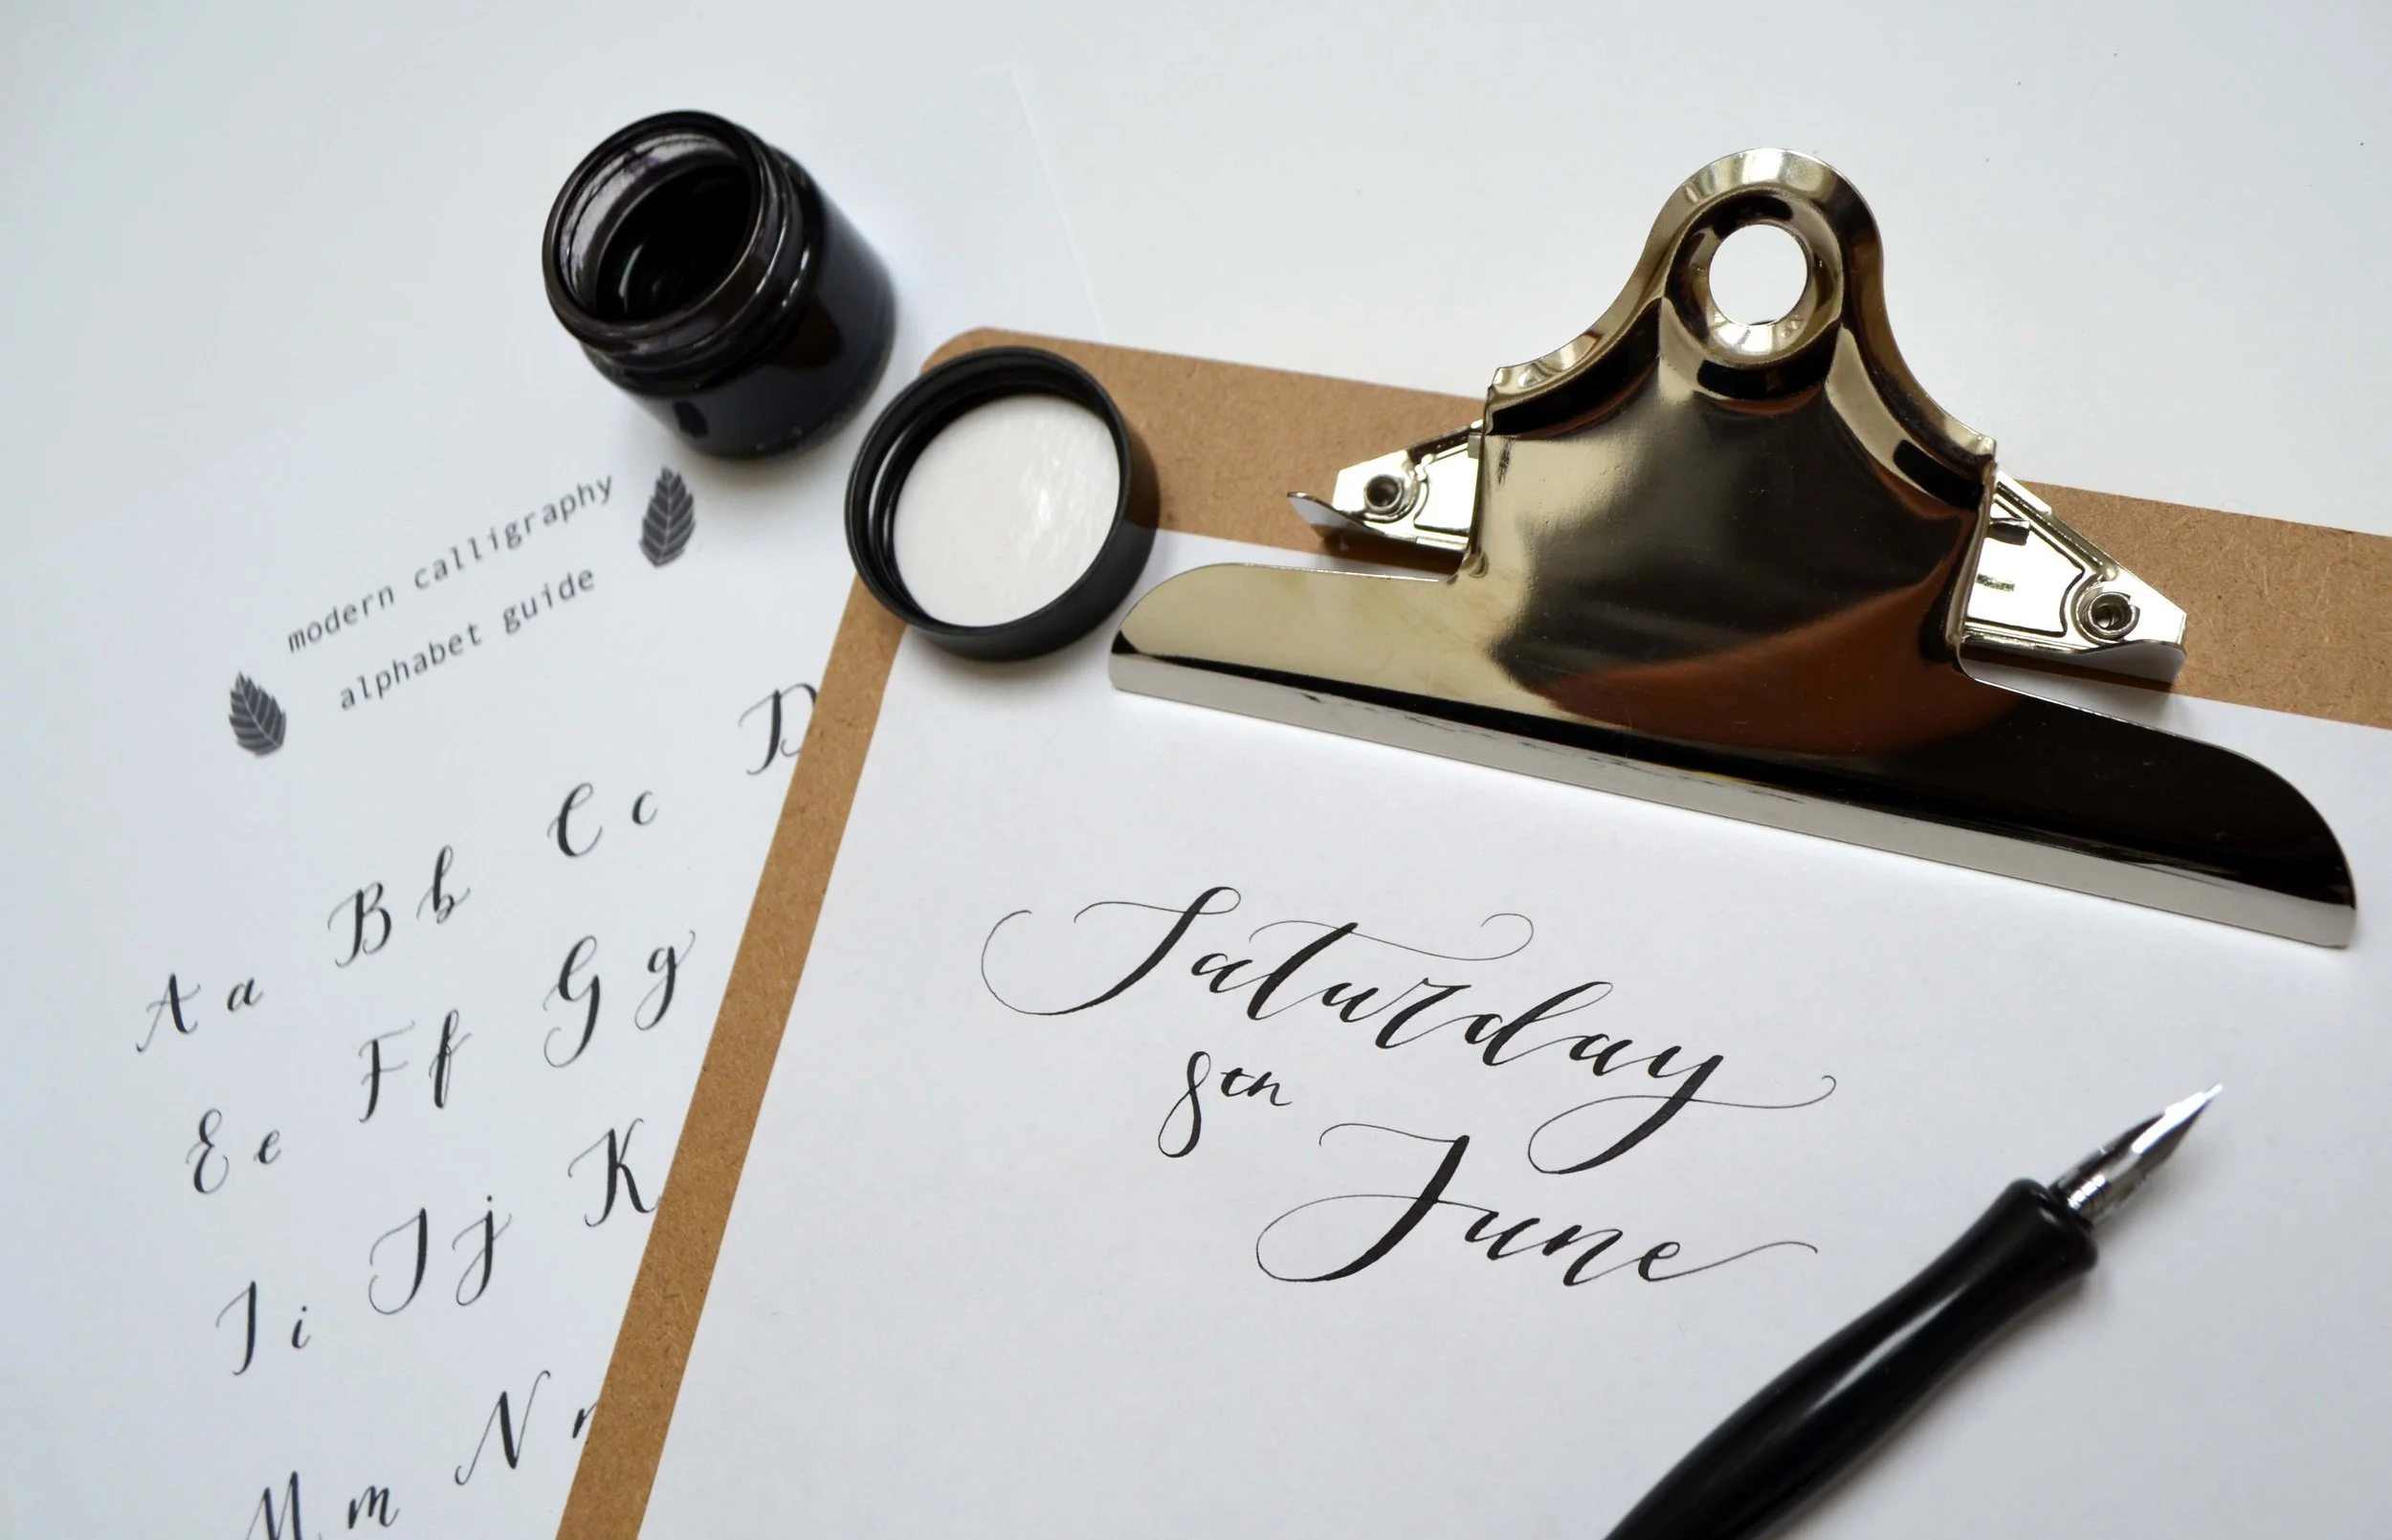 modern calligraphy
alphabet guide
A a B b C c D
E e F f G g
I i J j K
M m N n
Saturday
8th
June